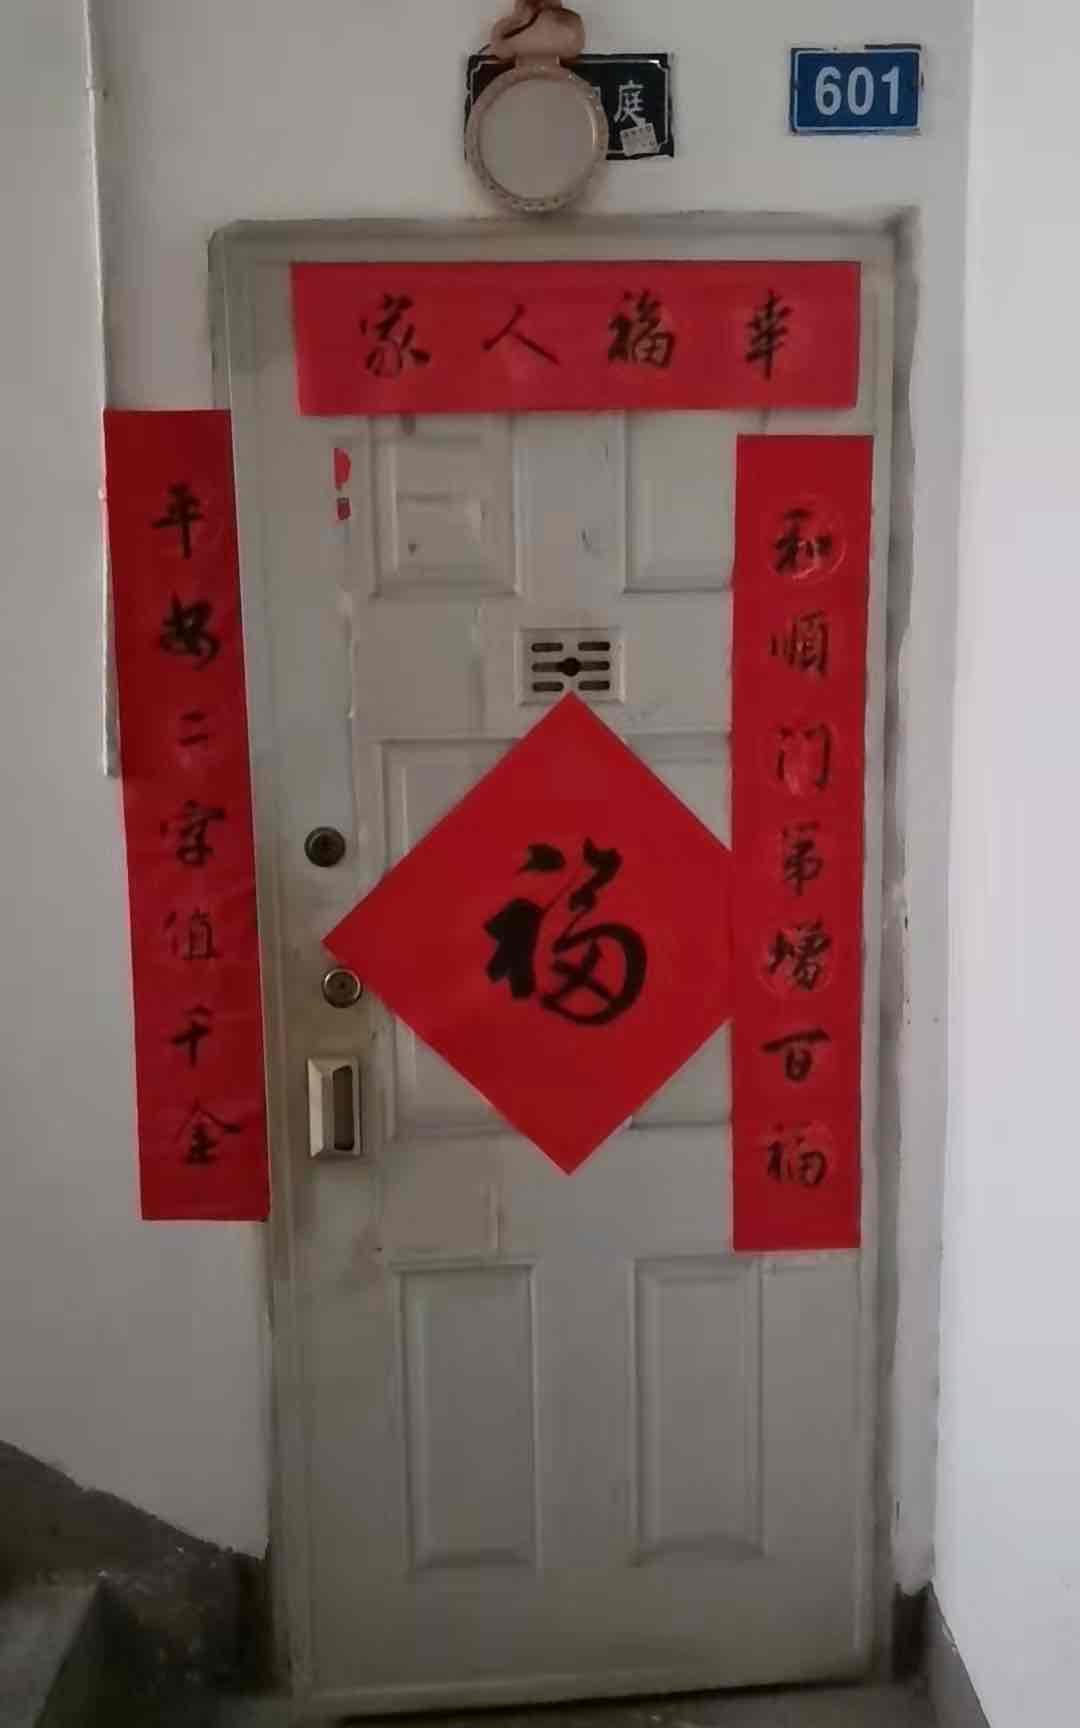 庭
601
幸福人家
和順门第增百福
平安二字值千金
福